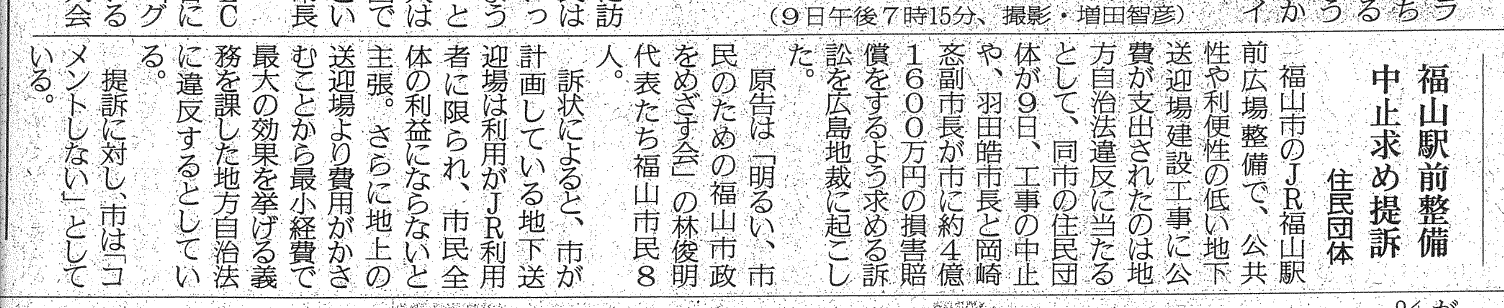 福山駅前整備
中止求め提訴
住民団体
福山市のJR福山駅
前広場整備で、公共
性や利便性の低い地下
送迎場建設工事に公
費が支出されたのは地
方自治法違反に当たる
として、同市の住民団
体が9日、工事の中止
や、羽田皓市長と岡崎
忞副市長が市に約4億
1600万円の損害賠
償をするよう求める訴
訟を広島地裁に起こし
た。
原告は「明るい、市
民のための福山市政
をめざす会」の林俊明
代表たち福山市民8
人。
訴状によると、市が
計画している地下送
迎場は利用がJR利用
者に限られ、市民全
体の利益にならないと
主張。さらに地上の
送迎場より費用がかさ
むことから最小経費で
最大の効果を挙げる義
務を課した地方自治法
に違反するとしてい
る。
提訴に対し、市は「コ
メントしない」として
いる。
(9日午後7時15分、撮影・増田智彦)